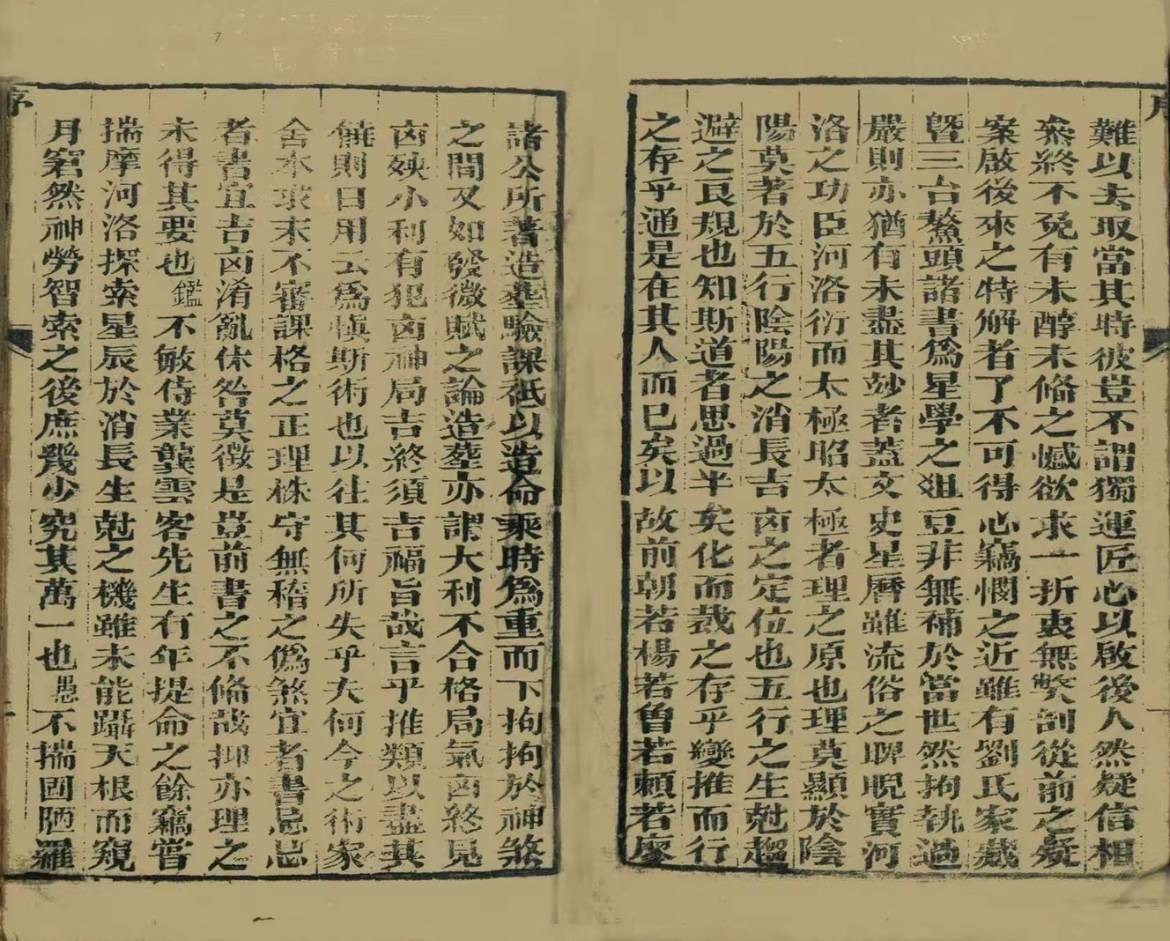 序
難以去取當其時彼豈不謂獨運匠心以啟後人然疑信相
叅終不免有未醇未偹之憾欲求一折衷無獘剖從前之疑
案啟後來之特解者了不可得心竊憫之近雖有劉氏家藏
曁三台鰲頭諸書爲星學之俎豆非無補於當世然拘執過
嚴則亦猶有未盡其玅者蓋文史星曆雖流俗之睥睨實河
洛之功臣河洛衍而太極昭太極者理之原也理莫顯於陰
陽莫著於五行陰陽之消長吉凶之定位也五行之生尅趨
避之良規也知斯道者思過半矣化而裁之存乎變推而行
之存乎通是在其人而已矣以故前朝若楊若曾若賴若廖
諸公所著造塟驗課祇以造命乘時爲重而下拘拘於神煞
之間又如發微賦之論造塟亦謂大利不合格局氣凶終見
凶殃小利有犯凶神局吉終須吉福旨哉言乎推類以盡其
饒則日用云爲慎斯術也以往其何所失乎夫何今之術家
舍本求末不審課格之正理株守無稽之僞煞宜者書忌忌
者書宜吉凶淆亂休咎莫徵是豈前書之不偹哉抑亦理之
未得其要也鑑不敏侍業龔雲客先生有年提命之餘竊嘗
揣摩河洛探索星辰於消長生尅之機雖未能躡天根而窺
月窟然神勞智索之後庶幾少究其萬一也愚不揣固陋羅
序